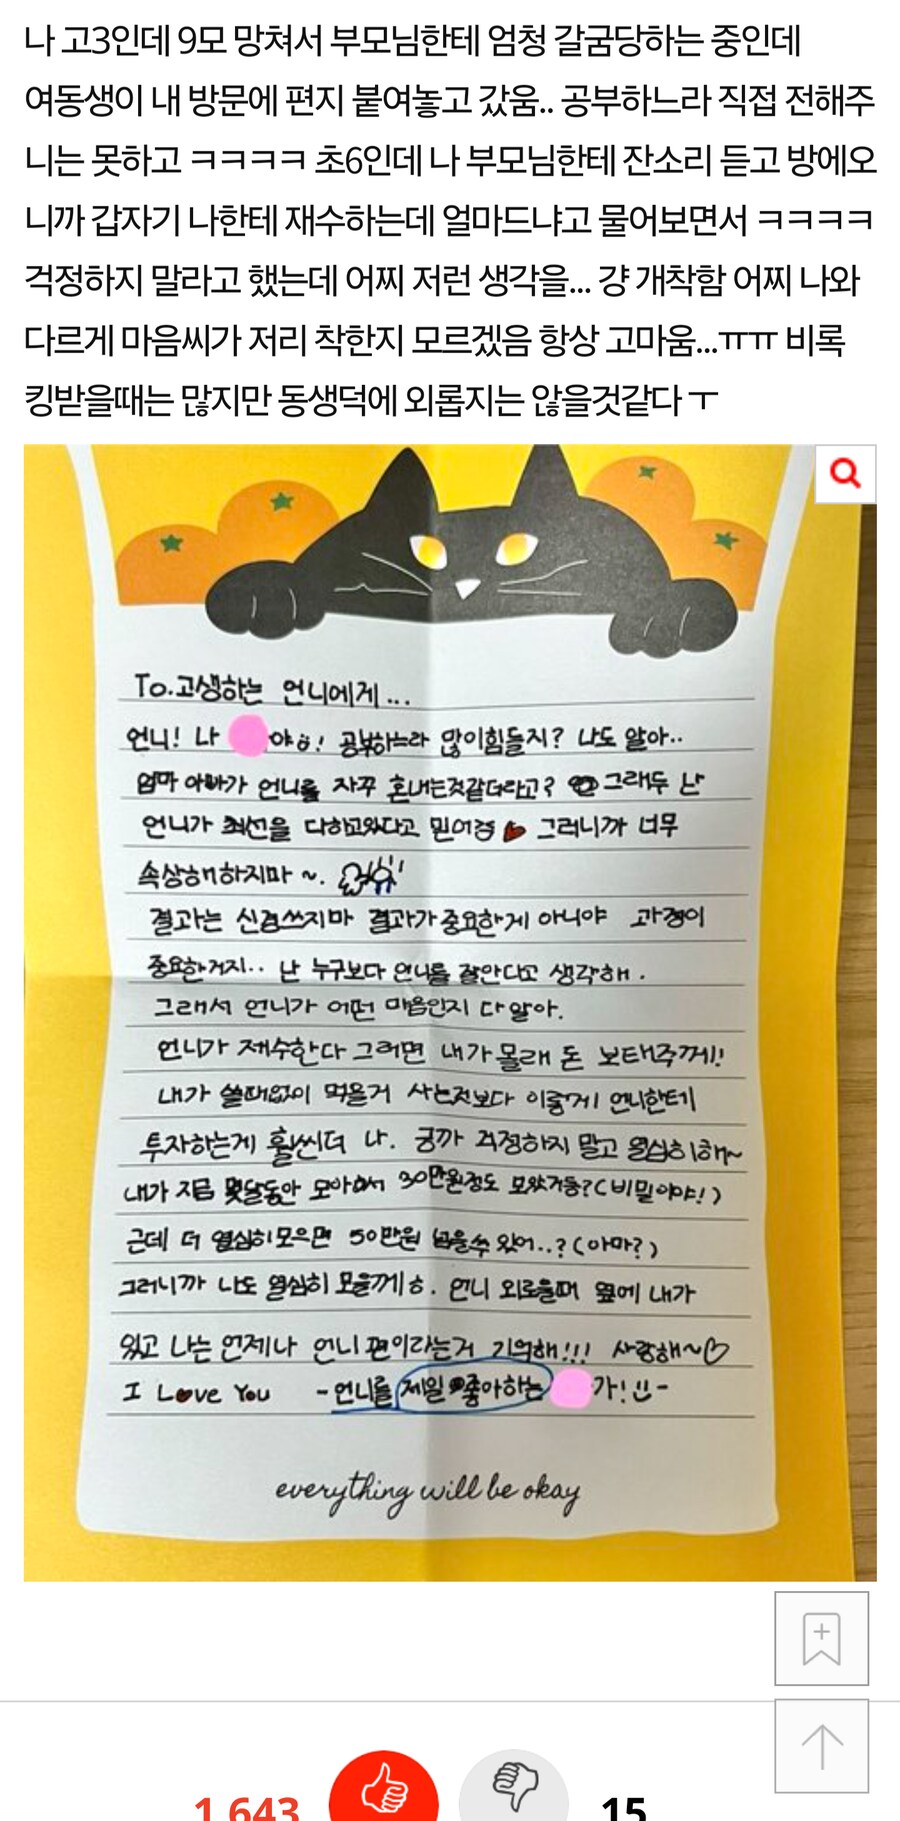 나 고3인데 9모 망쳐서 부모님한테 엄청 갈굼당하는 중인데
여동생이 내 방문에 편지 붙여놓고 갔움.. 공부하느라 직접 전해주
니는 못하고 ㅋㅋㅋㅋ 초6인데 나 부모님한테 잔소리 듣고 방에오
니까 갑자기 나한테 재수하는데 얼마드냐고 물어보면서 ㅋㅋㅋㅋ
걱정하지 말라고 했는데 어찌 저런 생각을... 걍 개착함 어찌 나와
다르게 마음씨가 저리 착한지 모르겠음 항상 고마움...ㅠㅠ 비록
킹받을때는 많지만 동생덕에 외롭지는 않을것같다 ㅜ
To.고생하는 언니에게...
언니! 나 야ㅎ! 공부하느라 많이힘들지? 나도 알아..
엄마 아빠가 언니를 자꾸 혼내는것같더라고? 그래두 난
언니가 최선을 다하고있다고 믿어 그러니까 너무
속상해하지마~.
결과는 신경쓰지마 결과가 중요한게 아니야 과정이
중요한거지.. 난 누구보다 언니를 잘안다고 생각해.
그래서 언니가 어떤 마음인지 다알아.
언니가 재수한다 그러면 내가 몰래 돈 보태주께!!
내가 쓸때없이 먹을거 사는것보다 이렇게 언니한테
투자하는게 훨씬더 나. 긍까 걱정하지 말고 열심히해~
내가 지금 몇달동안 모아서 30만원정도 모았거등?(비밀이야!)
근데 더 열심히모으면 50만원 넘을수 있어..?(아마?)
그러니까 나도 열심히 모을께ㅎ. 언니 외로울때 옆에 내가
있고 나는 언제나 언니 편이라는거 기억해!!! 사랑해~♡
I Love You -언니를 제일 좋아하는 가!-
everything will be okay
1,643
15